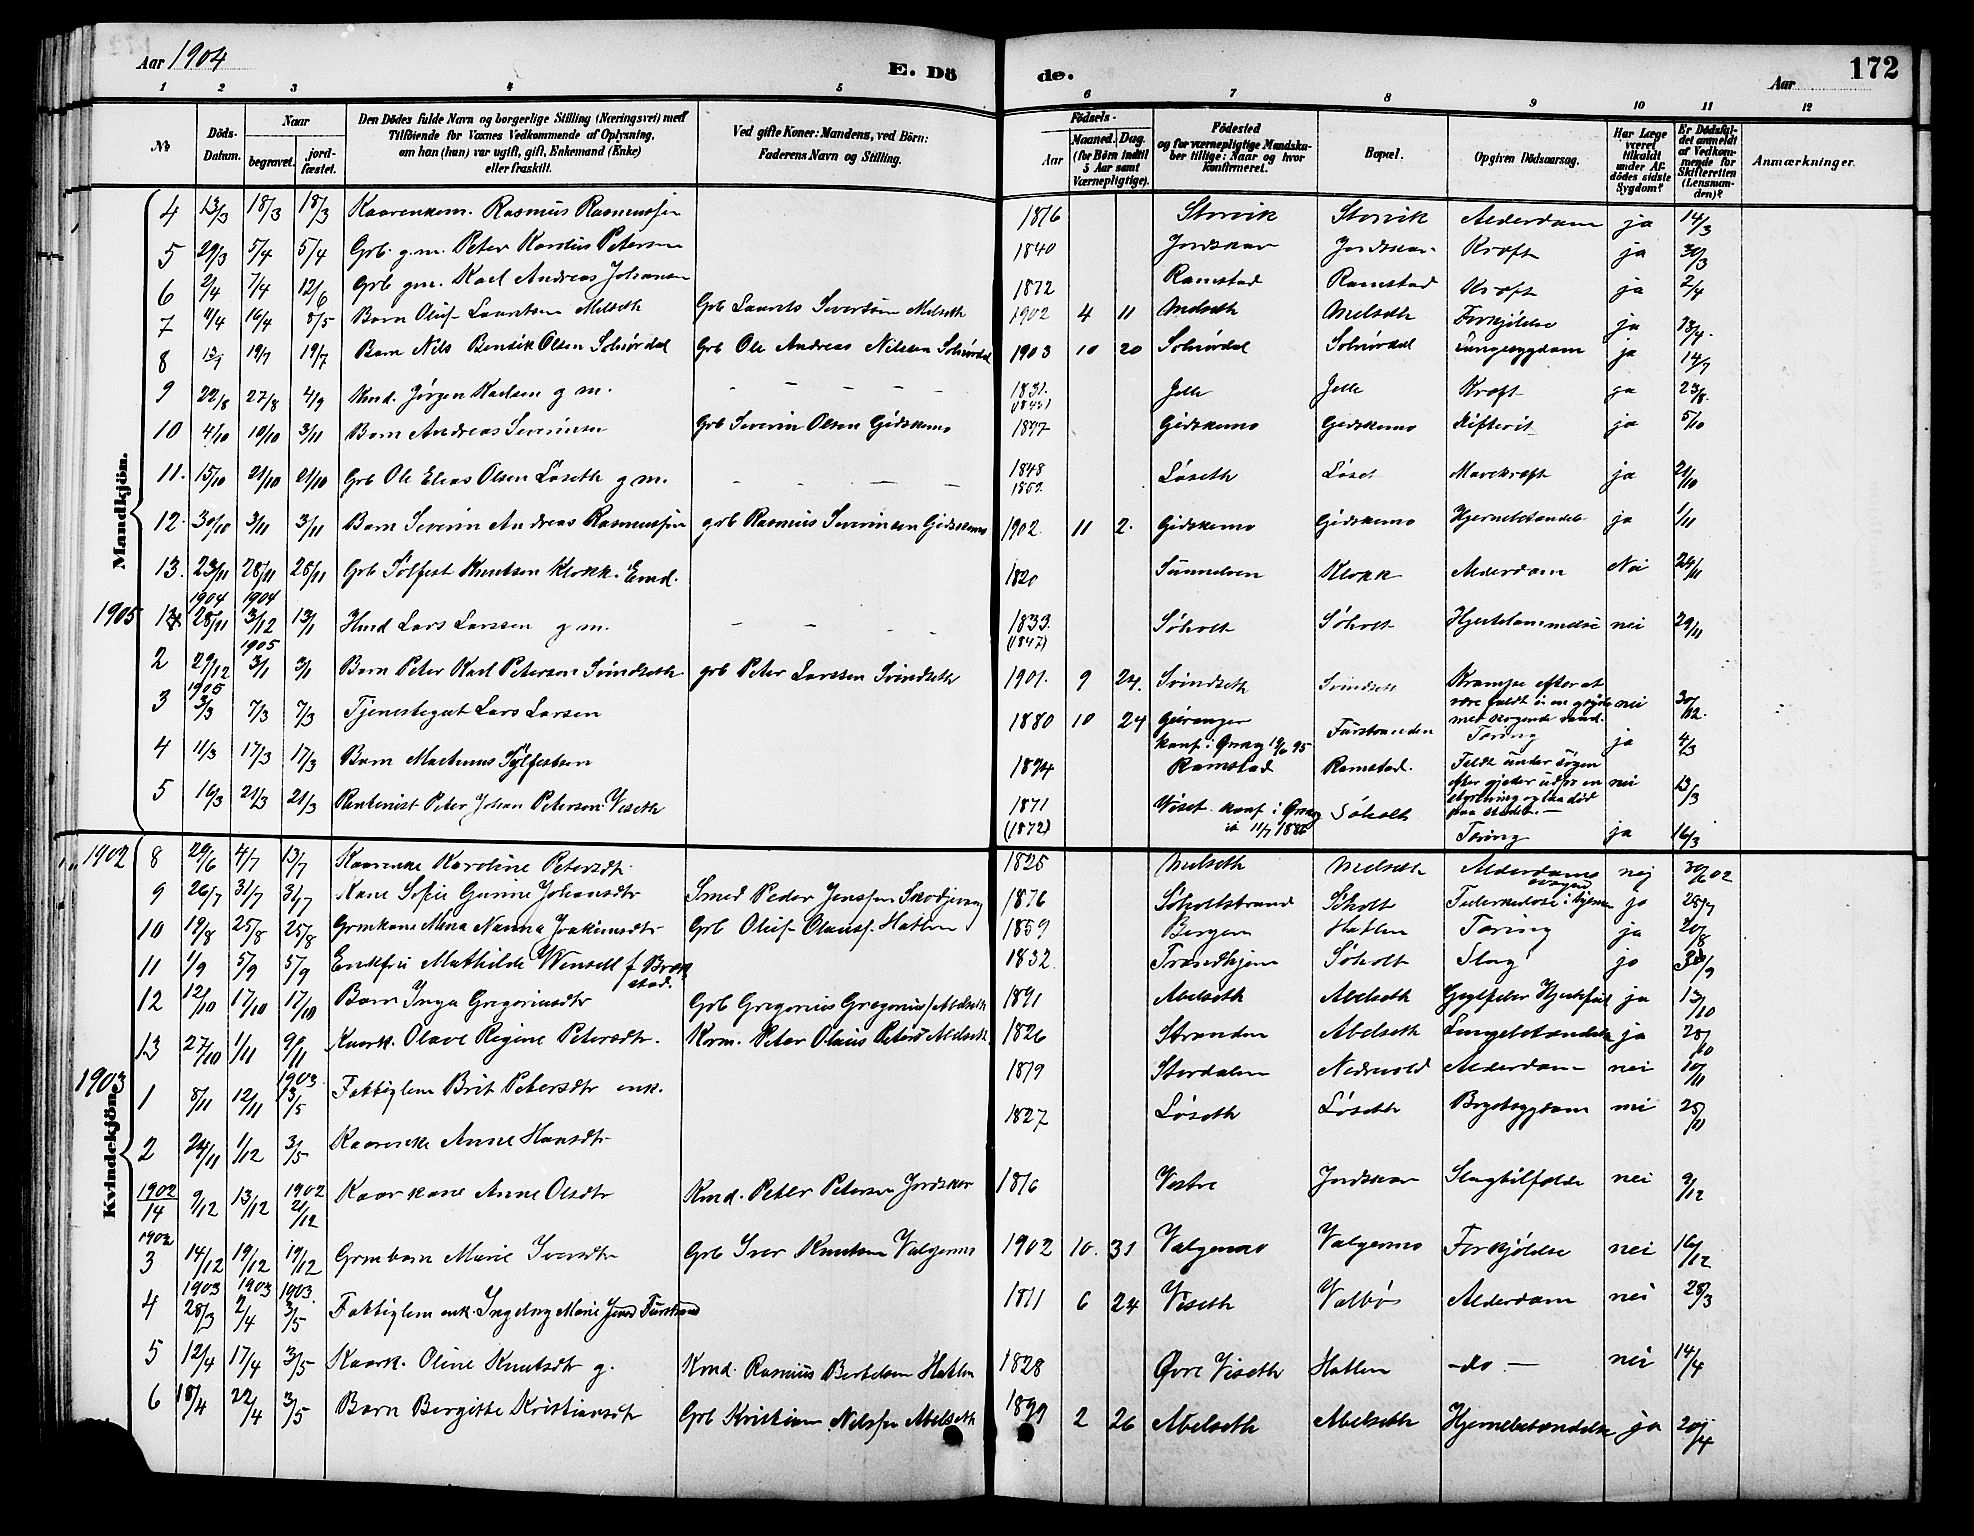 Aar 1904
E. Dö de.
Aar
172
1 2 3 4 5 6 7 8 9 10 11 12
No
Döds-Datum.
Naar
begravet.
jord-fæstet.
Den Dödes fulde Navn og borgerlige Stilling (Næringsvei) med
Tilföiende for Voxnes Vedkommende af Oplysning,
om han (hun) var ugift, gift, Enkemand (Enke)
eller fraskilt.
Ved gifte Koner: Mandens, ved Börn:
Faderens Navn og Stilling.
Födsels-
Aar
Maaned. Dag.
(for Börn indtil
5 Aar samt
Værnepligtige).
Födested
og for værnepligtige Mandska-
ber tillige: Naar og hvor
konfirmeret.
Bopæl.
Opgiven Dödsaarsag.
Har Læge
været
tilkaldt
under Af-
dödes sidste
Sygdom?
Er Dödsfal-
det anmeldt
af Vedkom-
mende for
Skifteretten
(Lensman-
den)?
Anmærkninger.
Mandkjön.
4 13/3 18/3 18/3 Kaarenkem. Rasmus Rasmussen 1816 Storvik Storvik Alderdom ja 14/3
5 29/3 5/4 5/4 Grb. g.m. Peter Karolus Petersen 1840 Jordskar Jordskar Kræft ja 30/3
6 2/4 7/4 12/6 Grb gm. Karl Andreas Johansen 1872 Ramstad Ramstad Kræft ja 2/4
7 11/4 16/4 8/5 Barn Oluf Lauritsen Melseth Grb Laurits Seversen Melseth 1902 4 11 Melseth Melseth Forkjölelse ja 13/4.
8 19/7 19/7 Barn Nils Bendik Olsen Solnördal Grb Ole Andreas Nilssen Solnördal 1903 10 20 Solnördal Solnördal Lungesygdom ja 14/7
9 22/8 27/8 4/9 Kmd. Jørgen Karlsen g m. - - - - 1831. Jelle Jelle Kræft ja 23/8.
10 4/10 10/10 3/11 Barn Andreas Severinsen Grb Severin Olsen Gidskemo 1897 Gidskemo Gidskemo Difterit ja 5/10
11. 15/10 21/10 21/10 Grb Ole Elias Olsen Løseth g m. - - - - 1848 Løseth Løset Mavekræft ja 21/10
12. 30/10 3/11 3/11 Barn Severin Andreas Rasmussen grb Rasmus Severinsen Gidskemo 1902. 11 2. Gidskemo Gidskemo Hjernebetændelse ja 1/11
13. 23/11 28/11 28/11 Grb Sölfest Knutsen Klokk. Emd. 1820 Sunnelven Klokk Alderdom Nei 24/11
1904 1904
1905 28/11 3/12 13/1 Hmd Lars Larssen g m. - - - - 1833. (1847) Søholt Søholt Hjertelammelse nei 29/11
1905
2 29/12 3/1 3/1 Barn Peter Karl Petersen Svindseth grb Peter Larssen Svindseth 1901. 9 24. Svindseth Svindseth Krampe efter at
være faldt i en gryde
med kogende vand. nei 30/12.
1905
3 3/3 7/3 7/3 Tjenestegut Lars Larsen 1880 10 24 Geiranger Furstranden Tæring ja 4/3
4 11/3 17/3 17/3 Barn Martinus Sylfestsen 1894 Ramstad Ramstad. Faldt under søgen
efter gjeder udfor en
styrtning og laa død
paa stedet. nei 13/3
5 16/3 21/3 21/3 Rentenist Peter Johan Petersen Viseth 1871 (1872) Viset konf i Ørskog 11/7 1886 Søholt Tæring ja 16/3
Kvindekjön.
1902 8 29/6 4/7 13/7 Kaarenke Karoline Petersdt. 1825 Melseth Melseth Alderdoms svaghed nej 30/6 02
9 26/7 31/7 31/7 Kone Sofie Gurine Johansdtr Smed Peder Jenssen Skodjevaag 1876 Søholtstrand Søholt Tuberkulose i hjernen ja 28/7
10 19/8 25/8 25/8 Grmkone Mina Nanna Joakimsdtr Grb Oluf Olauss. Hatlen 1859 Bergen Hatlen Tæring ja 20/8
11 1/9 5/9 5/9 Enkefru Mathilde Wensell f Brok
stad. 1832. Trondhjem Søholt Slag ja 3/9
12 12/10 17/10 17/10 Barn Inga Gregoriusdtr Grb Gregorius Gregorius. Abelseth 1891 Abelseth Abelseth Gigtfeber Hjertefeil ja 13/10
13 27/10 1/11 9/11 Kaark. Olave Regine Petersdtr. Krm. Peter Olaus Peters. Abelseth 1826 Stranden Abelseth Lungebetændelse ja 28/10
1903
1903 1 8/11 12/11 3/5 Fattiglem Brit Petersdtr enk. 1819 Stordalen Nedrevold Alderdom nei 10/11
2 24/11 1/12 3/5 Kaarenke Anne Hansdtr 1827 Løseth Løseth Brystsygdom nei 25/11
1902/14 9/12 13/12 1902 21/12 Kaarkone Anne Olsdtr Kmd. Peter Petersen Jordskar 1816 Vestre Jordskar Slagtilfælde nei 9/12
1902
3 14/12 19/12 19/12 Grmbarn Marie Iversdtr Grb Iver Knutsen Valgermo 1902 10. 31 Valgermo Valgermo Forkjölelse nei 16/12
1903 1903 1903.
4 28/3 2/4 3/5 Fattiglem enk. Ingeborg Marie Jensd Furstrand 1811 6 24 Viseth Valbø Alderdom nei 28/3
5 12/4 17/4 3/5 Kaark. Oline Knutsdtr g. Kmd. Rasmus Bertelsen Hatlen 1828 Øvre Viseth Hatlen -do- nei 14/4
6 18/4 22/4 3/5 Barn Bergitte Kristiansdtr Grb Kristian Nilssen Abelseth 1899 2 26 Abelseth Abelseth Hjernebetændelse ja 20/4